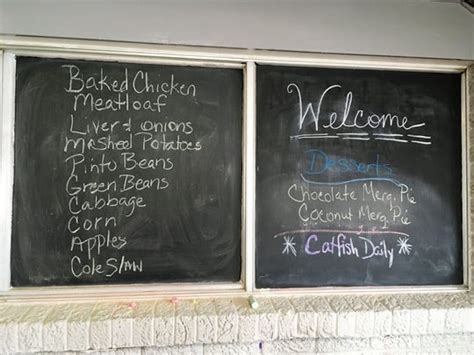 Baked Chicken
Meatloaf
Liver & onions
Mashed Potatoes
Pinto Beans
Green Beans
Cabbage
Corn
Apples
Cole Slaw
Welcome
Desserts
Chocolate Merg. Pie
Coconut Merg. Pie
* Catfish Daily *